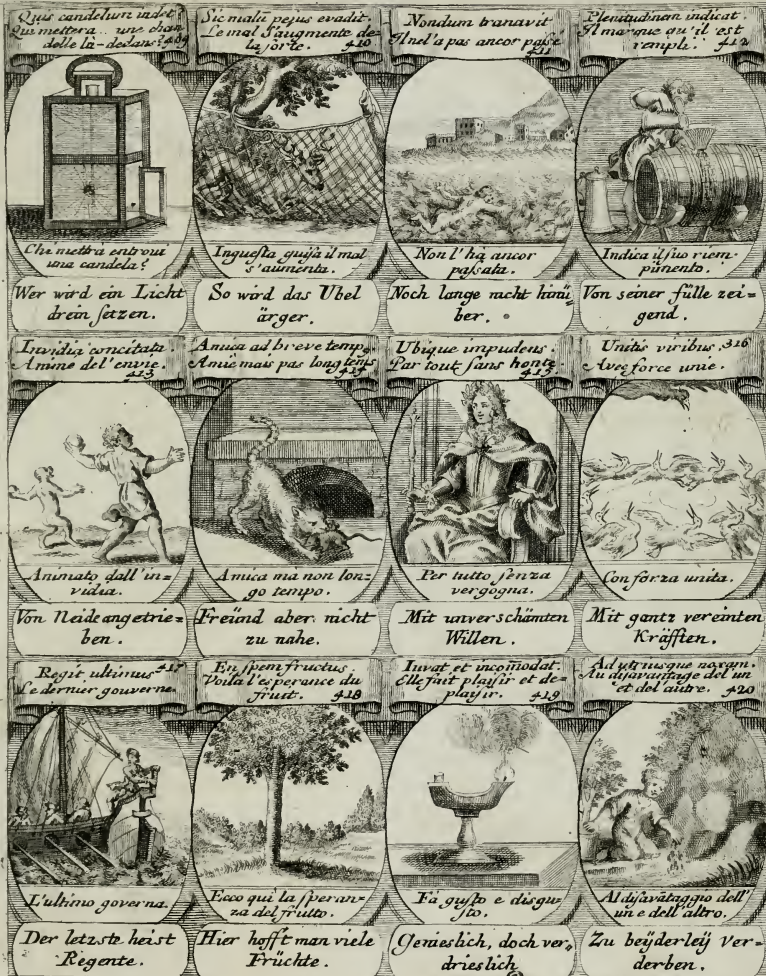 Quis candelam indet?
Qui mettera une chan
delle la-dedans? 409
Chi mettrà entroui
una candela?
Wer wird ein Licht
drein setzen.
Sic malũ pejus evadit.
Le mal S'augmente de
la sorte. 410
Inquesta guisa il mal
s'aumenta.
So wird das Ubel
ärger.
Nondum tranavit
Il nel'a pas ancor passé
411
Non l'hà ancor
passata.
Noch lange nicht hinü
ber.
Plenitudinem indicat.
Il marque qu'il est
rempli. 412
Indica il suo riem-
pimento.
Von seiner fülle zei=
gend.
Invidia concitata.
Animé del'envie.
413
Animato dall'in=
vidia.
Von Neide angetrie=
ben.
Amica ad breve temp9.
Amie mais pas long tems
414
Amica mà non lon-
go tempo.
Freünd aber nicht
zu nahe.
Ubique impudens.
Par tout sans honte
415
Per tutto senza
vergogna.
Mit unverschämten
Willen.
Unitis viribus. 316
Avec force unie.
Con forza unita.
Mit gantz vereinten
Kräfften.
Regit ultimus 417
Le dernier gouverne.
L'ultimo governa.
Der letzste heist
Regente.
En spem fructus.
Voila l'esperance du
fruit. 418
Ecco quì la speran-
za del frutto.
Hier hofft man viele
Früchte.
Iuvat et incomodat.
Elle fait plaisir et de=
plaisir. 419
Fà gusto e disgu-
sto.
Genieslich, doch ver„
drieslich
Ad utriusque noxam.
Au disavantage del'un
et del'autre. 420
Al disavãtaggio dell'
un e dell'altro.
Zu beÿderleÿ ver=
derben.